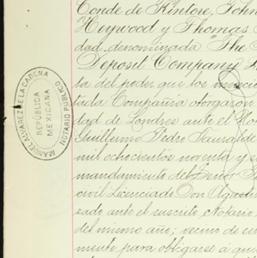 Conde de Kintore, John
Heywood y Thomas
dad, denominada The
Deposit Company
ta del poder que los
tula Compañia otorgaron
dad de Londres ante el
Guillermo Pedro
mil ochocientos noventa y
mandamiento del Señor
civil Licenciado Don Agustin
sado ante el suscrito Notario
del mismo año; vecino de
mente para obligarse á
MANUEL ALVAREZ DE LA CADENA
REPÚBLICA
MEXICANA
NOTARIO PUBLICO